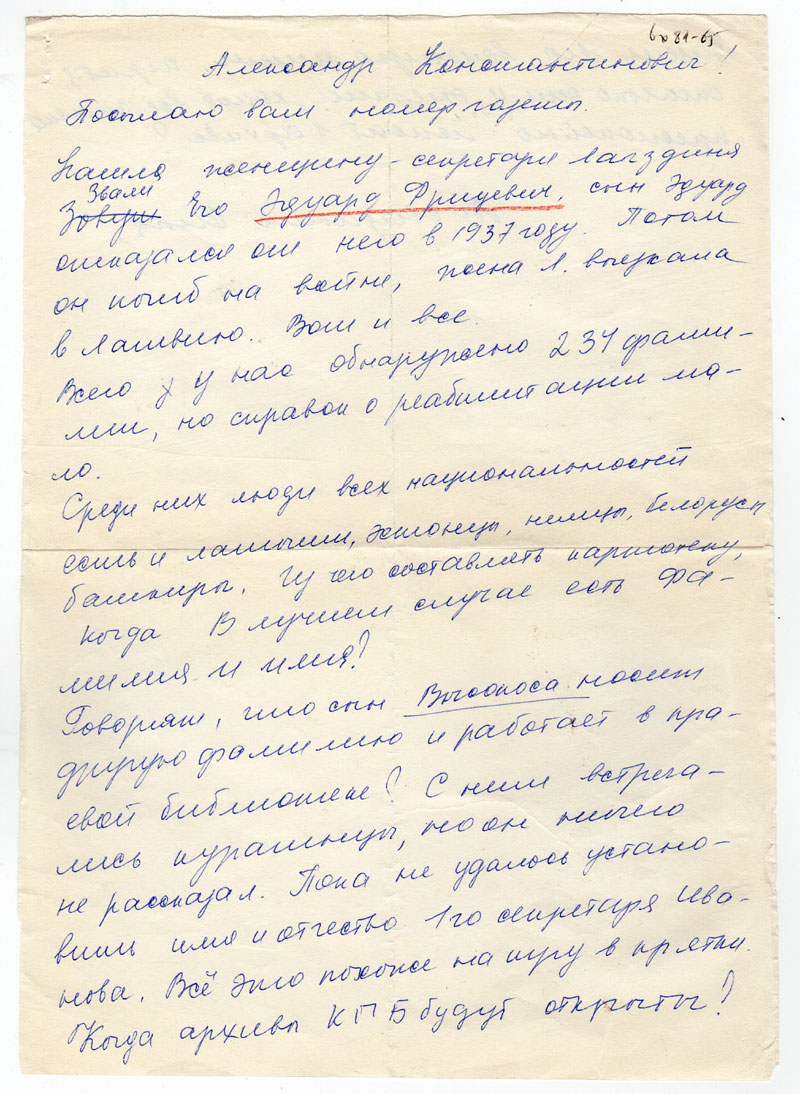 6х81-65
Александр Константинович!
Посылаю вам номер газеты.
Нашла женщину-секретаря Лагздиня
Звали
Его Эдуард Фрицевич, сын Эдуард
отказался от него в 1937 году. Потом
он погиб на войне, жена Л. выехала
в Латвию. Вот и все.
Всего у нас обнаружено 234 фами-
лии, но справок о реабилитации ма-
ло.
Среди них люди всех национальностей
есть и латыши, эстонцы, немцы, белорусы
башкиры. Ну что составлять картотеку,
когда В лучшем случае есть фа-
милия и имя?
Говорят, что сын Высокоса носит
другую фамилию и работает в кра-
евой библиотеке? С ним встреча-
лись курагинцы, но он ничего
не рассказал. Пока не удалось устано-
вить имя и отчество 1го секретаря Ива-
нова. Всё это похоже на игру в прятки.
Когда архивы КГБ будут открыты?